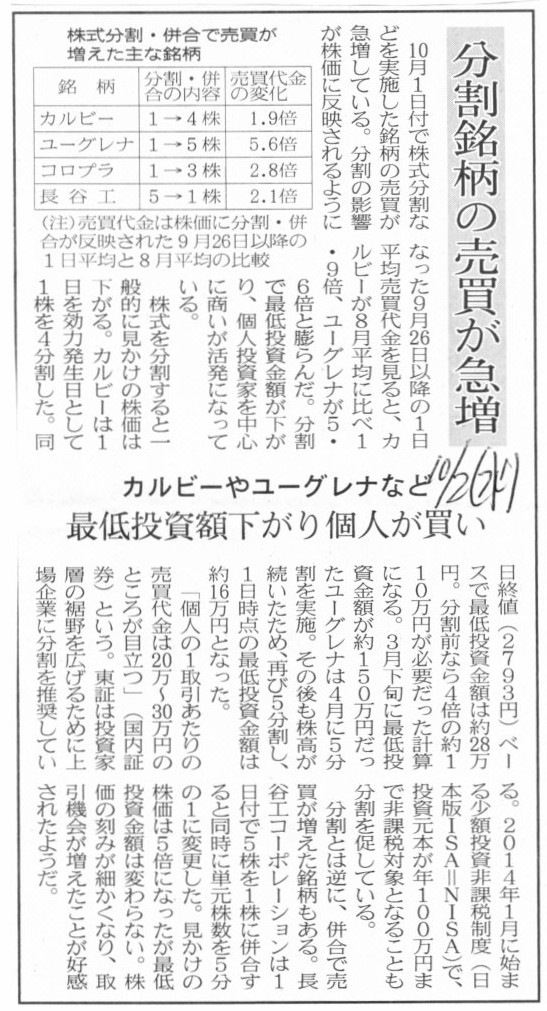 分割銘柄の売買が急増
10/2(水)
カルビーやユーグレナなど
最低投資額下がり個人が買い
株式分割・併合で売買が
増えた主な銘柄
銘柄 分割・併合の内容 売買代金の変化
カルビー 1→4株 1.9倍
ユーグレナ 1→5株 5.6倍
コロプラ 1→3株 2.8倍
長谷工 5→1株 2.1倍
(注)売買代金は株価に分割・併
合が反映された9月26日以降の
1日平均と8月平均の比較
10月１日付で株式分割な
どを実施した銘柄の売買が
急増している。分割の影響
が株価に反映されるように
なった９月26日以降の１日
平均売買代金を見ると、カ
ルビーが８月平均に比べ１
・９倍、ユーグレナが５・
６倍と膨らんだ。分割
で最低投資金額が下が
り、個人投資家を中心
に商いが活発になって
いる。
株式を分割すると一
般的に見かけの株価は
下がる。カルビーは１
日を効力発生日として
１株を４分割した。同
日終値（２７９３円）ベー
スで最低投資金額は約28万
円。分割前なら４倍の約１
１０万円が必要だった計算
になる。３月下旬に最低投
資金額が約１５０万円だっ
たユーグレナは４月に５分
割を実施。その後も株高が
続いたため、再び５分割し、
１日時点の最低投資金額は
約16万円となった。
「個人の１取引あたりの
売買代金は20万～30万円の
ところが目立つ」（国内証
券）という。東証は投資家
層の裾野を広げるために上
場企業に分割を推奨してい
る。２０１４年１月に始ま
る少額投資非課税制度（日
本版ＩＳＡ＝ＮＩＳＡ）で、
投資元本が年１００万円ま
で非課税対象となることも
分割を促している。
分割とは逆に、併合で売
買が増えた銘柄もある。長
谷工コーポレーションは１
日付で５株を１株に併合す
ると同時に単元株数を５分
の１に変更した。見かけの
株価は５倍になったが最低
投資金額は変わらない。株
価の刻みが細かくなり、取
引機会が増えたことが好感
されたようだ。